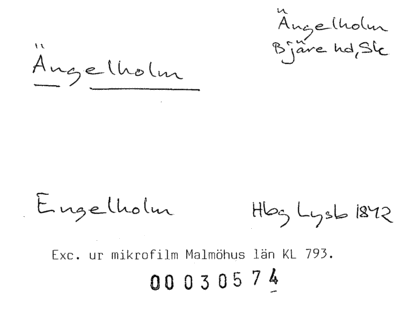 Ängelholm
Bjäre hd, Sk
Ängelholm
Engelholm
Hbg Lysb 1842
Exc. ur mikrofilm Malmöhus län KL 793.
00030574